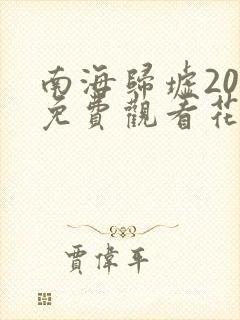 南海歸墟20
免費觀看花
賈偉平